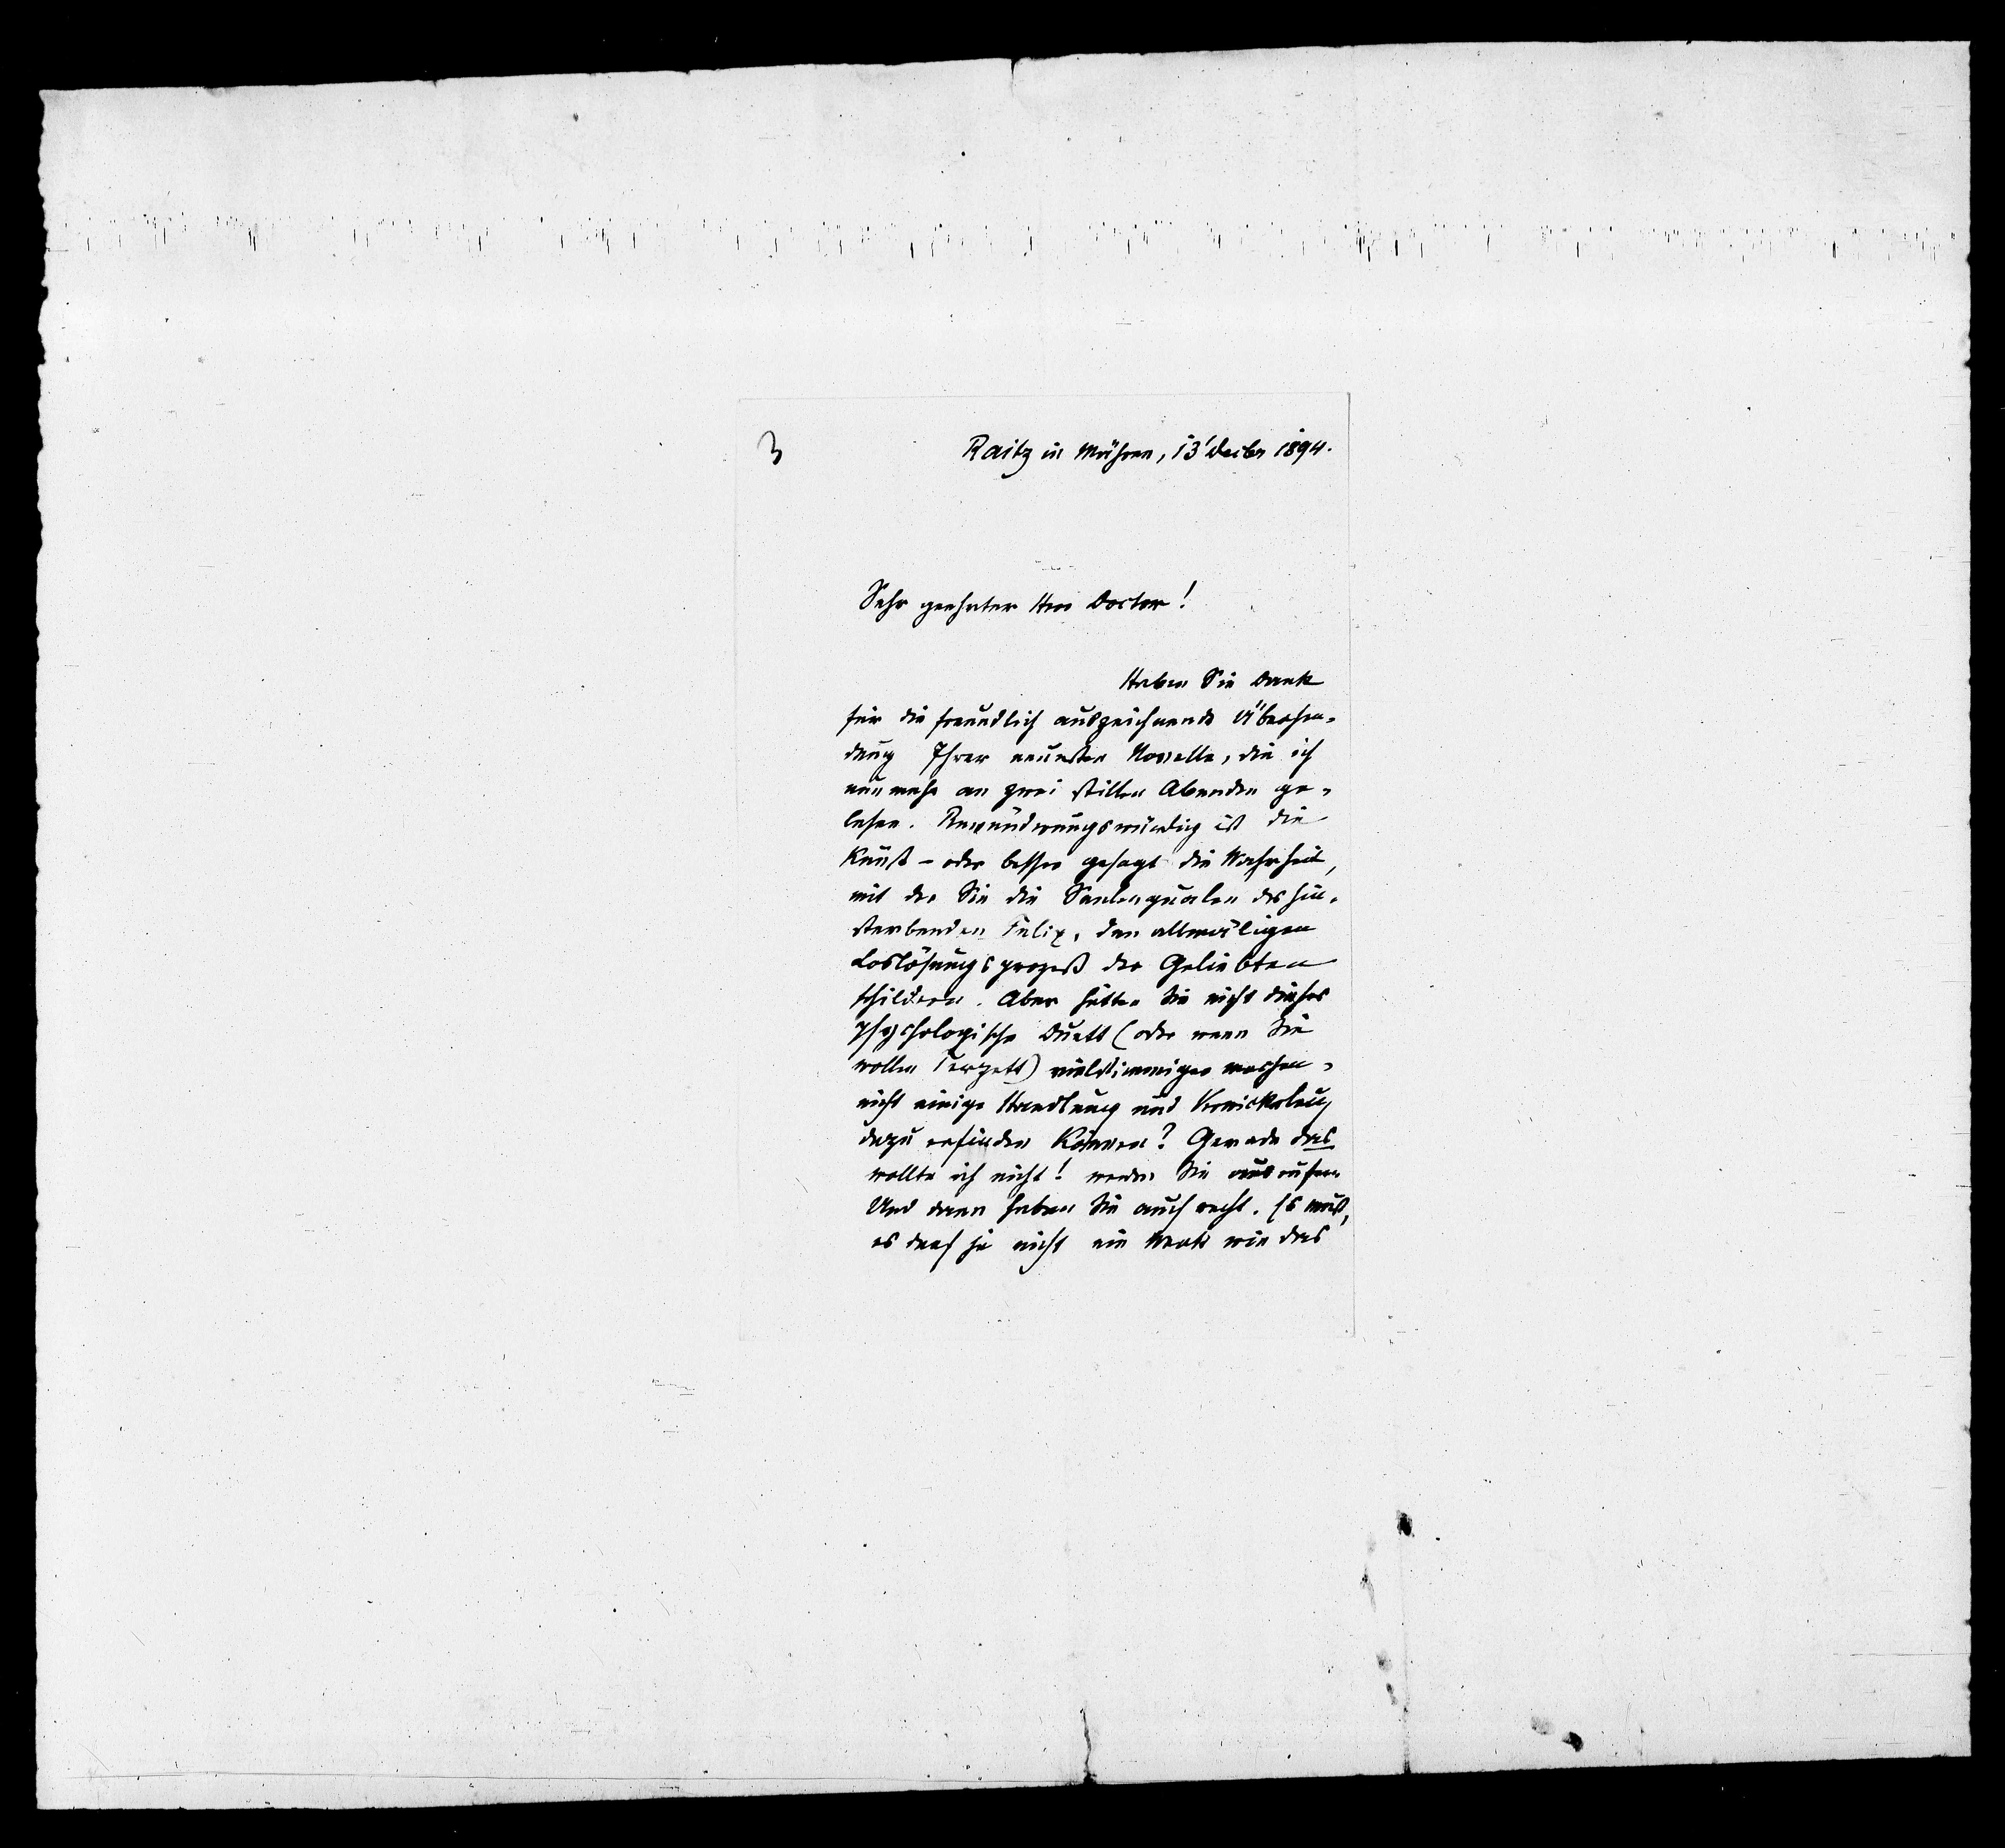 3
Raitz in Mähren, 13' Decber 1894.
Sehr geehrter Herr Doctor!
Haben Sie Dank
für die freundlich auszeichnende Übersen-
dung Ihrer neuesten Novelle, die ich
nunmehr an zwei stillen Abenden ge-
lesen. Bewunderungswürdig ist die
Kunst – oder besser gesagt die Wahrheit,
mit der Sie die Seelenqualen des hin-
sterbenden Felix, den allmäligen
Loslösungsprozeß der Geliebten
schildern. Aber hätten Sie nicht dieses
psychologische Duett (oder wenn Sie
wollen Terzett) vielstimmiger machen,
nicht einige Handlung und Verwickelung
dazu erfinden können? Gerade das
wollte ich nicht! werden Sie ausrufen
Und dann haben Sie auch recht. Es muß,
es darf ja nicht ein Werk wie das